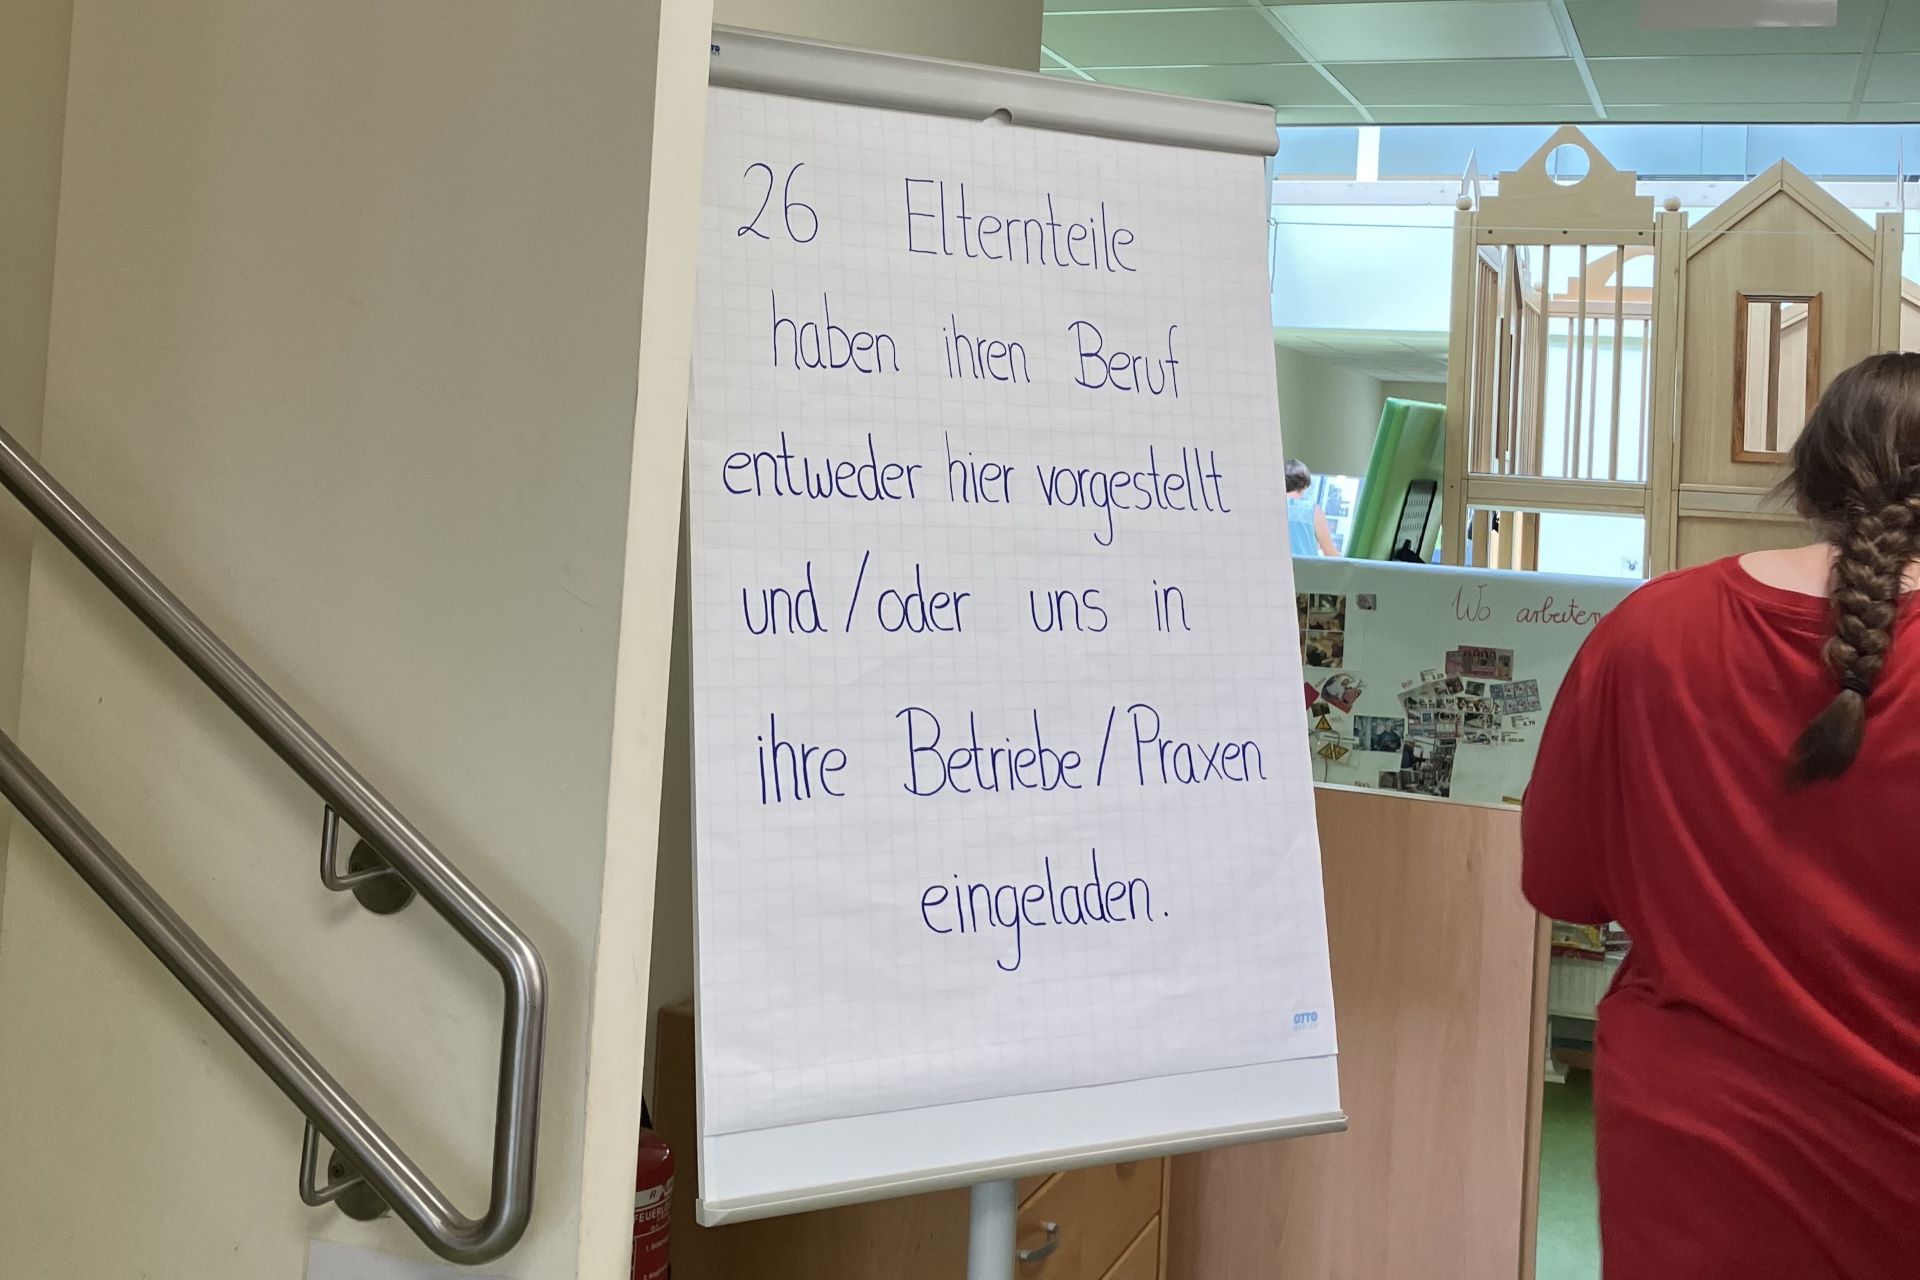 26 Elternteile
haben ihren Beruf
entweder hier vorgestellt
und/oder uns in
ihre Betriebe/Praxen
eingeladen.
OTTO
Wo arbeiten